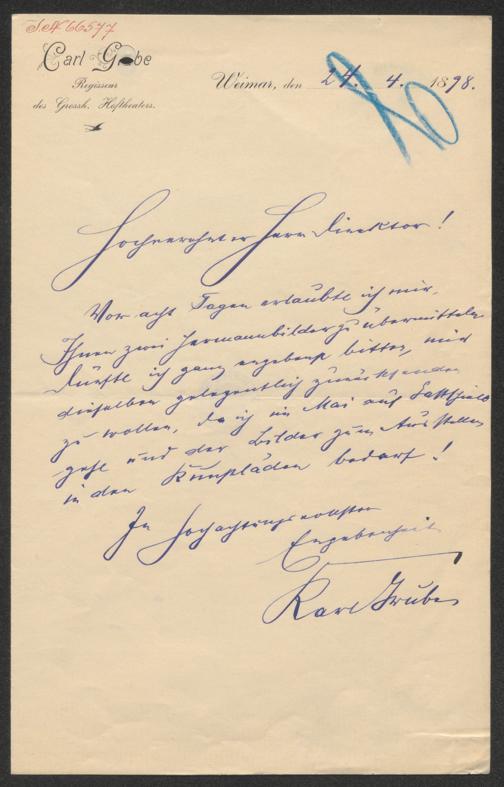 J.N 66577
Carl G be
Regisseur
des Grossh. Hoftheaters.
Weimar, den 24. 4. 1898.
Hochverehrter Herr Direktor!
Vor acht Tagen erlaubte ich mir,
Ihnen zwei Hermannbilder zu übermitteln
Dürfte ich ganz ergebenst bitten, mir
dieselben gelegentlich zurücksenden
zu wollen, da ich im Mai auf Gastspiele
gehe und der Bilder zum Ausstellen
in den Kunstläden bedarf!
In hochachtungsvollster
Ergebenheit
Karl Grube